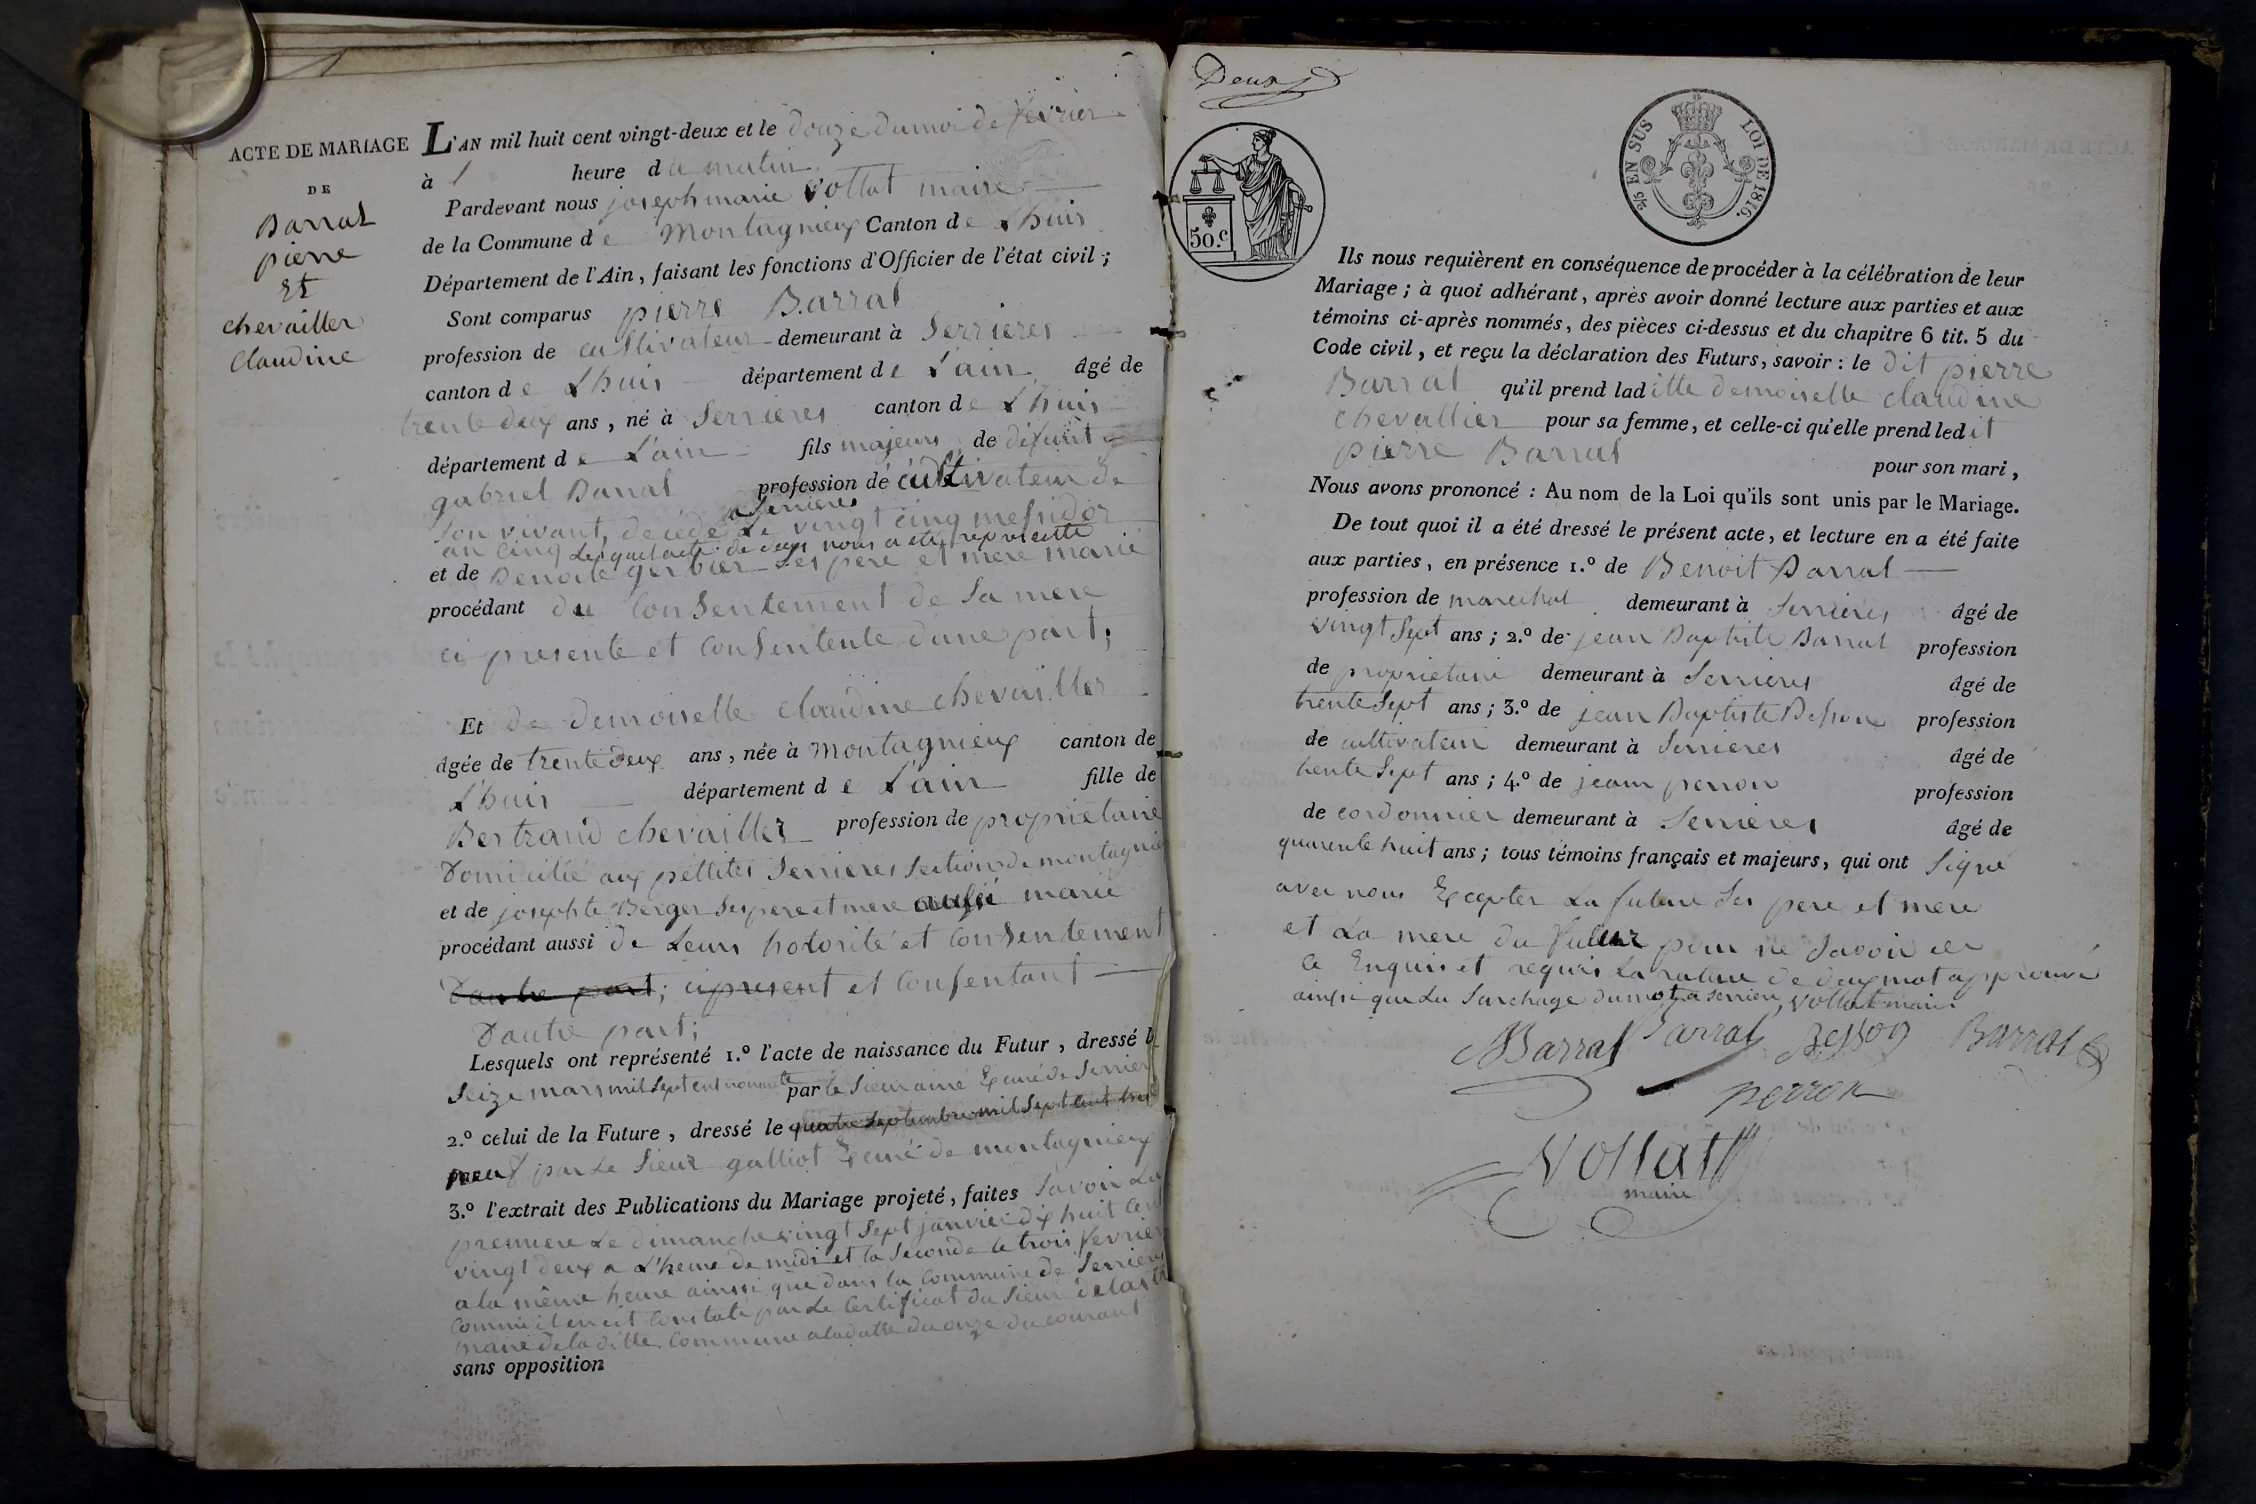 ACTE DE MARIAGE
DE
Barral
pierre
Et
chevailler
Claudine
L'AN mil huit cent vingt-deux et le douze du moi de fevrier
à heure du matin
Pardevant nous joseph marie Vollat maire
de la Commune de Montagnieux Canton de Lhuis
Département de l'Ain, faisant les fonctions d'Officier de l'état civil;
Sont comparus pierre Barral
profession de cultivateur demeurant à Serrieres
canton de Lhuis département de L'ain âgé de
trente deux ans, né à Serrieres canton de L'huis
département de L'ain fils majeur de défunt
gabriel Barral profession de cultivateur de
a Serrieres
son vivant, décédé Le vingt cinq messidor
an cinq Lequel acte de deces nous a été représenté
et de Benoite gerbier ses pere et mere marié
procédant du Consentement de Sa mere
ci presente et Consentente d'une part;
Et de demoiselle Claudine chevailler
âgée de trente deux ans, née à Montagnieux canton de
L'huis département de L'ain fille de
Bertrand chevailler profession de proprietaire
Domicilié aux pettites Serrieres Section de montagnie
et de josephte Berger Ses pere et mere aussi marié
procédant aussi de Leurs hotorité et Consentement
D'autre part; ci present et Consentant
D'autre part;
Lesquels ont représenté 1.º l'acte de naissance du Futur, dressé l
Seize mars mil sept cent nonante par le Sieur aimé Ex curé de Serrier
2.º celui de la Future, dressé le quatre septembre mil Sept cent
neuf par Le Sieur galliot Ex curé de montagnieux
3.º l'extrait des Publications du Mariage projeté, faites Savoir La
premiere Le dimanche vingt Sept janvier dix huit cent
vingt deux a L'heure de midi et la Seconde le trois fevrier
a la même heure ainssi que dans la Commune de Serrieres
Comme il en est Constaté par Le Certificat du Sieur
maire de la ditte Commune a la datte du onze du courant
sans opposition
Deux
50.c
2/5 EN SUS LOI DE 1816.
Ils nous requièrent en conséquence de procéder à la célébration de leur
Mariage; à quoi adhérant, après avoir donné lecture aux parties et aux
témoins ci-après nommés, des pièces ci-dessus et du chapitre 6 tit. 5 du
Code civil, et reçu la déclaration des Futurs, savoir: le dit pierre
Barral qu'il prend laditte demoiselle claudine
chevallier pour sa femme, et celle-ci qu'elle prend ledit
pierre Barral pour son mari,
Nous avons prononcé: Au nom de la Loi qu'ils sont unis par le Mariage.
De tout quoi il a été dressé le présent acte, et lecture en a été faite
aux parties, en présence 1.º de Benoit Barral
profession de marechal demeurant à Serrieres âgé de
vingt Sept ans; 2.º de jean Baptiste Barral profession
de proprietaire demeurant à Serrieres âgé de
trente Sept ans; 3.º de jean Baptiste Besson profession
de cultivateur demeurant à Serrieres âgé de
trente Sept ans; 4.º de jean perron profession
de cordonnier demeurant à Serrieres âgé de
quarente huit ans; tous témoins français et majeurs, qui ont Signé
avec nous Excepter La future Ses pere et mere
et La mere du futur pour ne Savoir de
Ce Enquis et requis La rature de deux mot approuvé
ainssi que La Surchage du mot a Serriere, Vollat maire
Barral Barral Besson Barral
perron
Vollat
maire